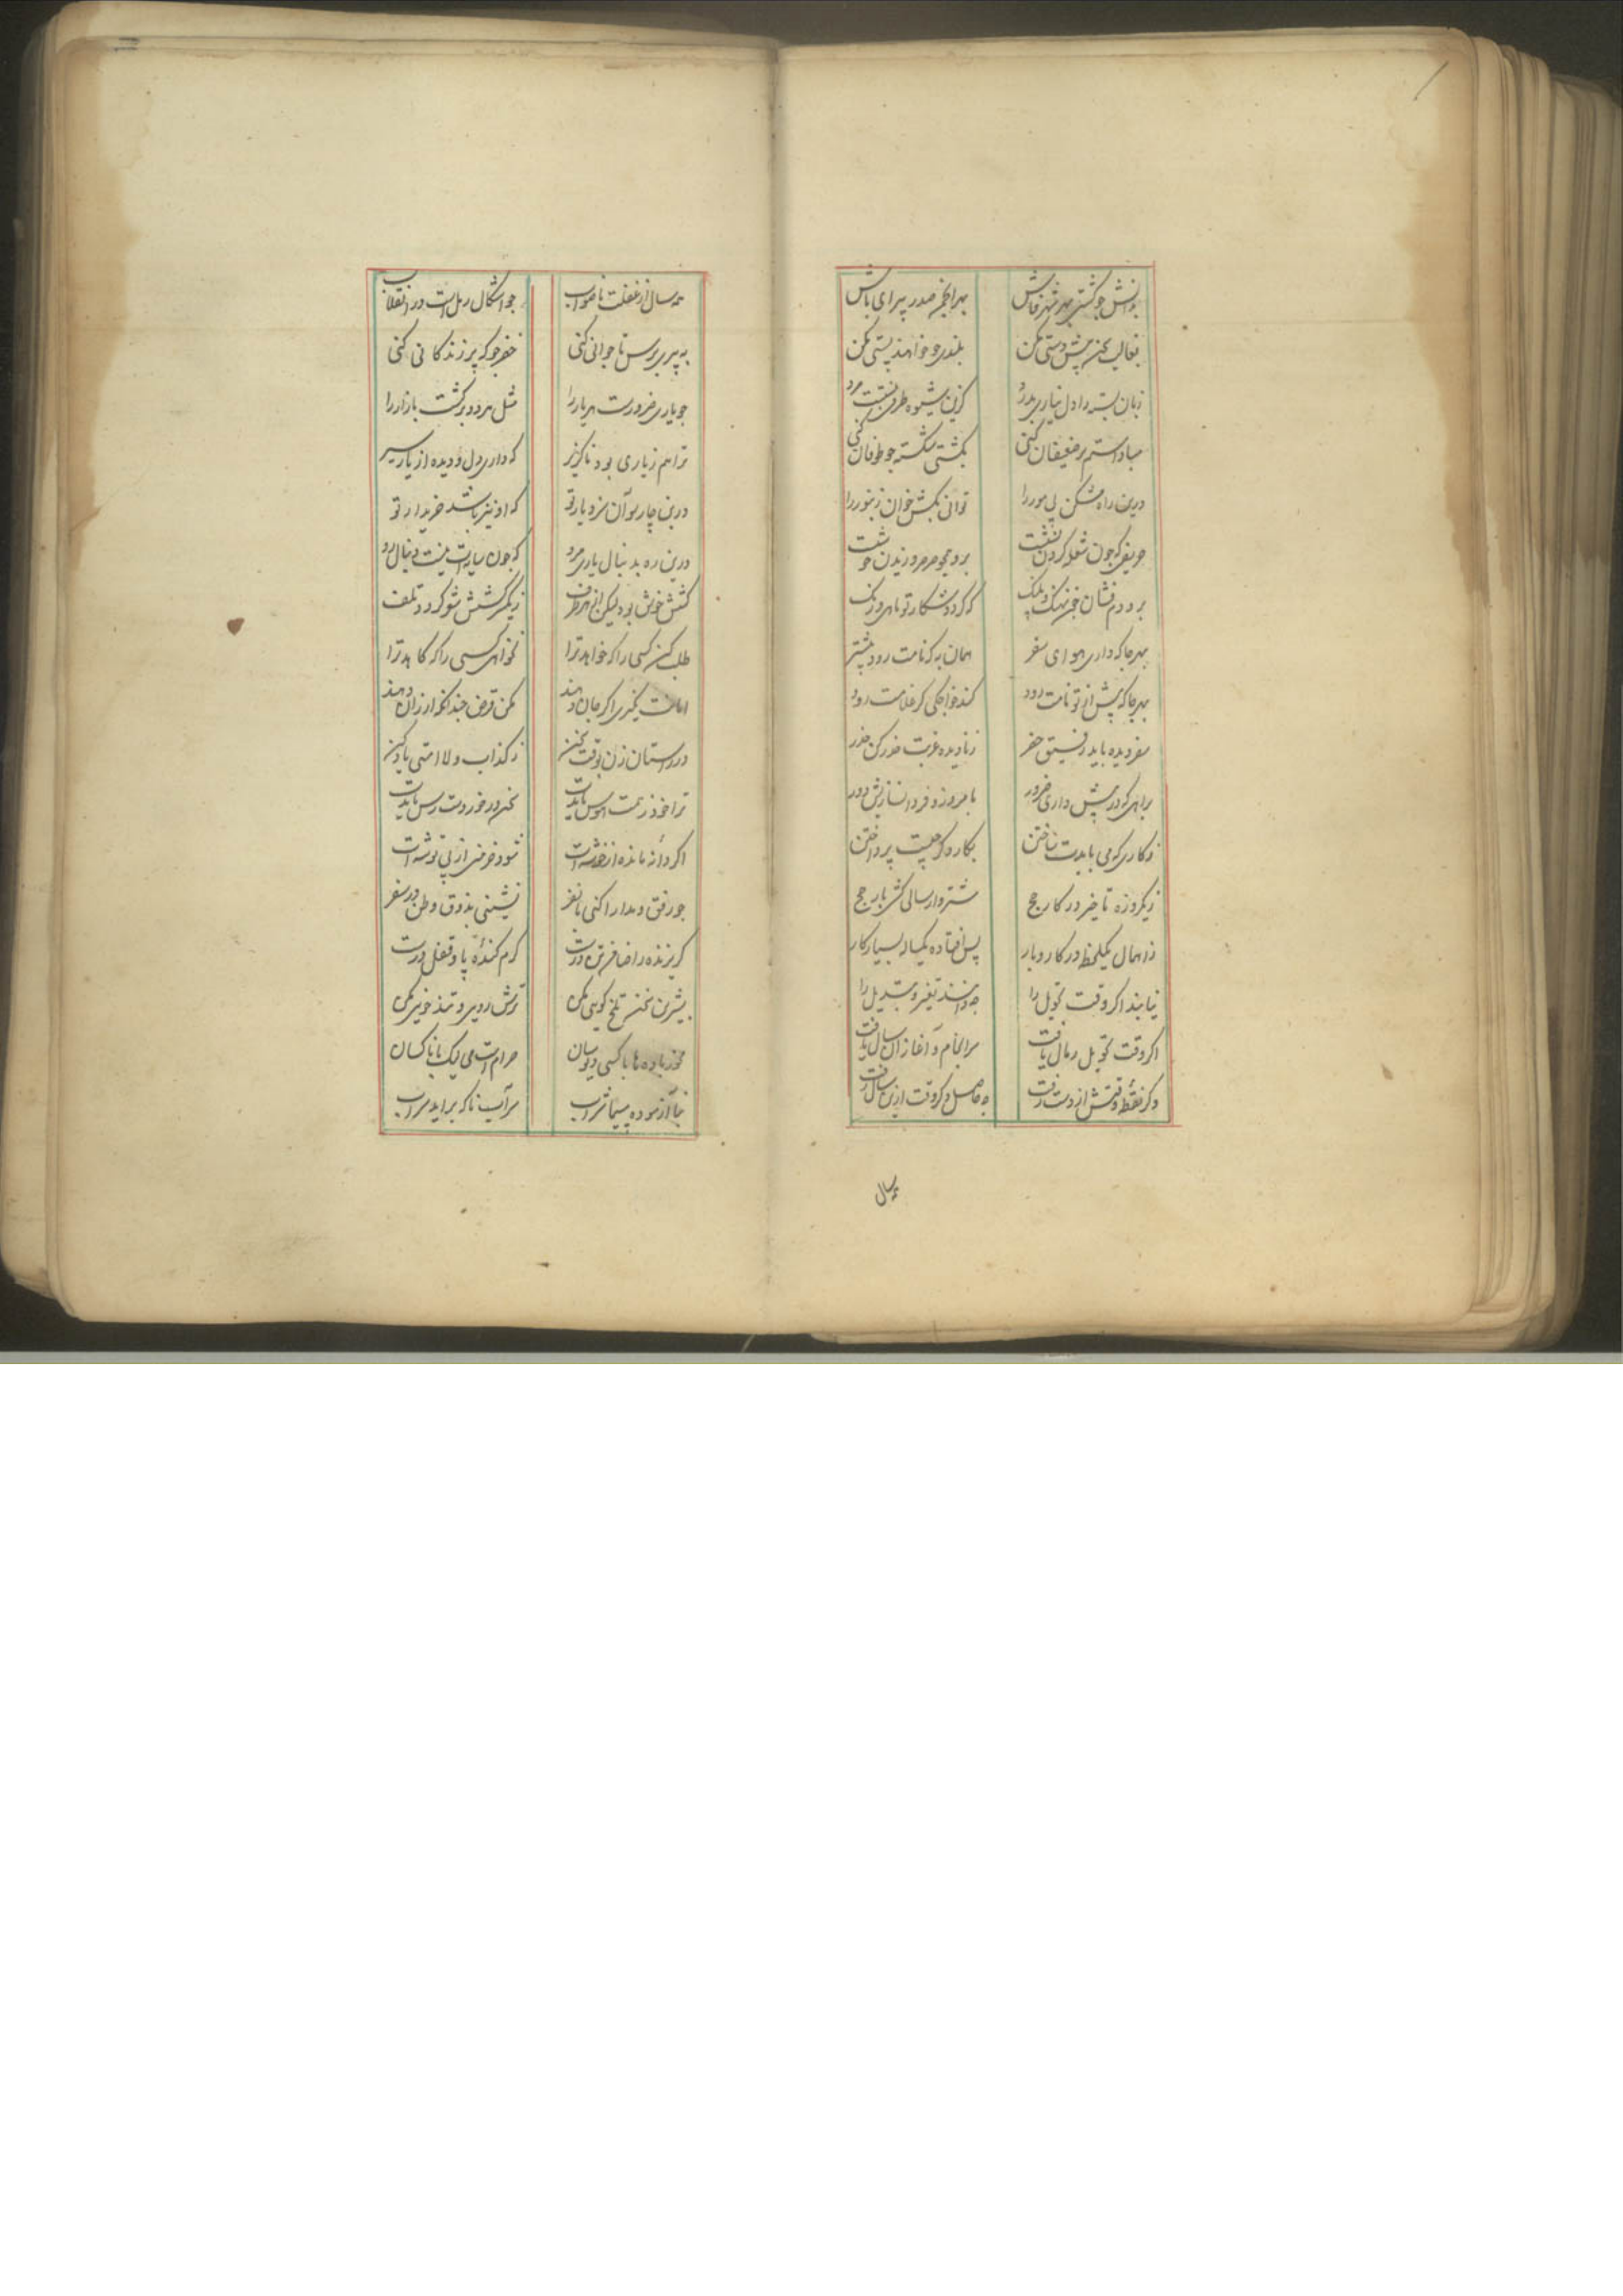 بدانش چو گشتی بهر شهر فاش بهر انجمن صدر پیرای باش
بغالب سخن پیش دستی مکن بلندی چو خواهند پستی مکن
زبان بسته را دل نیاری بدرد کزین شیوه طرفی نبست مرد
مبادا ستم بر ضعیفان کنی بکشتی شکسته چو طوفان کنی
درین راه مشکن پی مور را توانی بکش خوان زنبور را
حریفی که چون شعله گردن برو همچو صرصر وزیدن
برو دم فشان نهنگ و پلنگ که گردد شکار تو ماهی و رنگ
بهر جا که داری هوای سفر همان به که نامت رود پیشتر
بهر جا که پیش از تو نامت رود کند خواجگی گر غلامت رود
سفر دیده باید رفیق حضر ز نادیده غربت حذر کن حذر
براهی که در پیش داری ضرور بامروز و فردا نسازیش دور
ز کاری که می بایدت ساختن بکار دگر چیست پرداختن
ز یکروزه تاخیر در کار حج شتروار سالی کش بار حج
ز اهمال یکلحظه در کار و بار پس افتاده یکساله بسیار کار
نیابند اگر وقت تحویل را چه دانند تغییر و تبدیل را
اگر وقت تحویل رمال یافت سرانجام و آغاز آن سال یافت
وگر نقطه وقتش از دست رفت چه حاصل دگر وقت ازین سال رفت
همه سال
همه سال از غفلت ناصواب چو اشکال رمل است در انقلاب
به پیری برس تا جوانی کنی خضر جو که پر زندگانی کنی
چو یاری ضرورت بهر یار را مثل مر دو برگشت بازار را
ترا هم ز یاری بود ناگزیر که داری دل و دیده از یار سیر
درین چارسو آن سزد یار تو که او نیز باشد خریدار تو
درین ره بدنبال یاری مرو که چون سایه است دنبال رو
کشش خوش بود لیکن از هر طرف ز یکسر کشش شو گردد تلف
طلب کن کسی را که خواهد ترا نخواهی کسی را که کاهد ترا
امانت نگیری اگر جان دهند مکن قرض چندانکه ارزان دهند
در داستان زن بوقت سخن ز کذاب ولا امتی یاد کن
ترا خود ز همت هوس بایدت سخن در خور دست رس بایدت
اگر دانه مانده از خوشه است شود خرمنی از پی توشه است
چو رفق و مدارا کنی با نفر نشینی بذوق وطن در سفر
گریزنده را ضافرین درت کرم کنده پا و قفل درت
بشیرین سخن تلخ گویی مکن ترش رویی و تند خویی مکن
مخور باده ها با کسی حرام است می لیک با ناکسان
نیاآزموده مپیما شراب سرآب ناگه برآید سراب